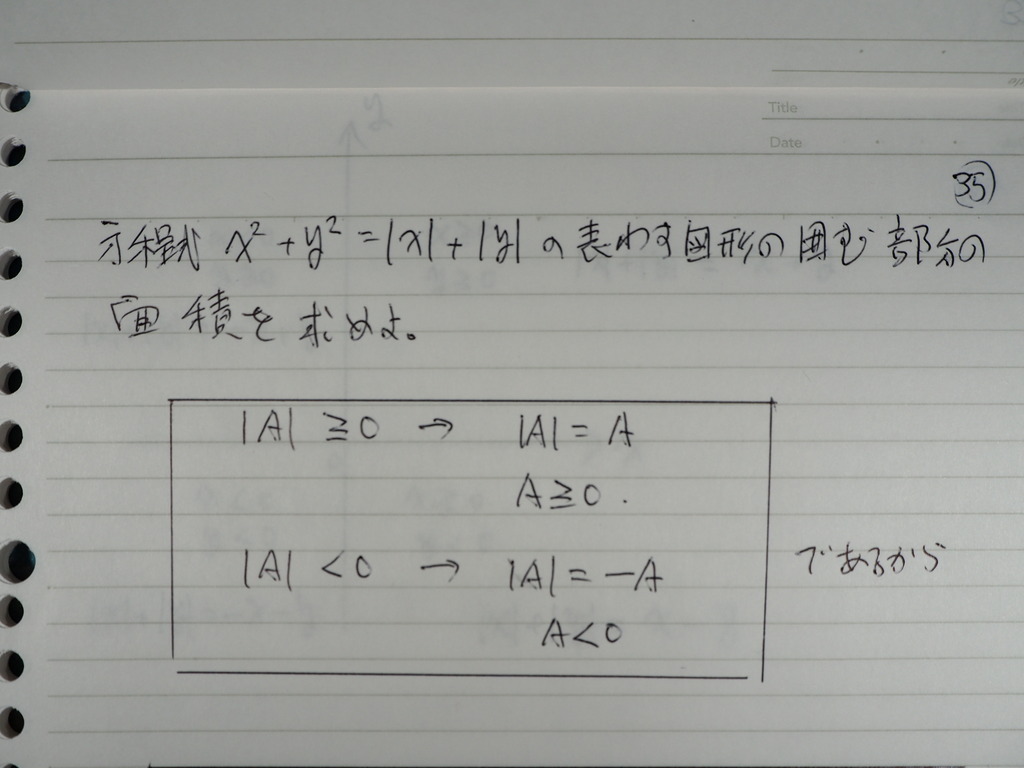 Title
Date
35
方程式 x² + y² = |x| + |y| の表わす図形の囲む部分の
面積を求めよ。
|A| ≧ 0 → |A| = A
A ≧ 0 .
|A| < 0 → |A| = -A
A < 0
であるから